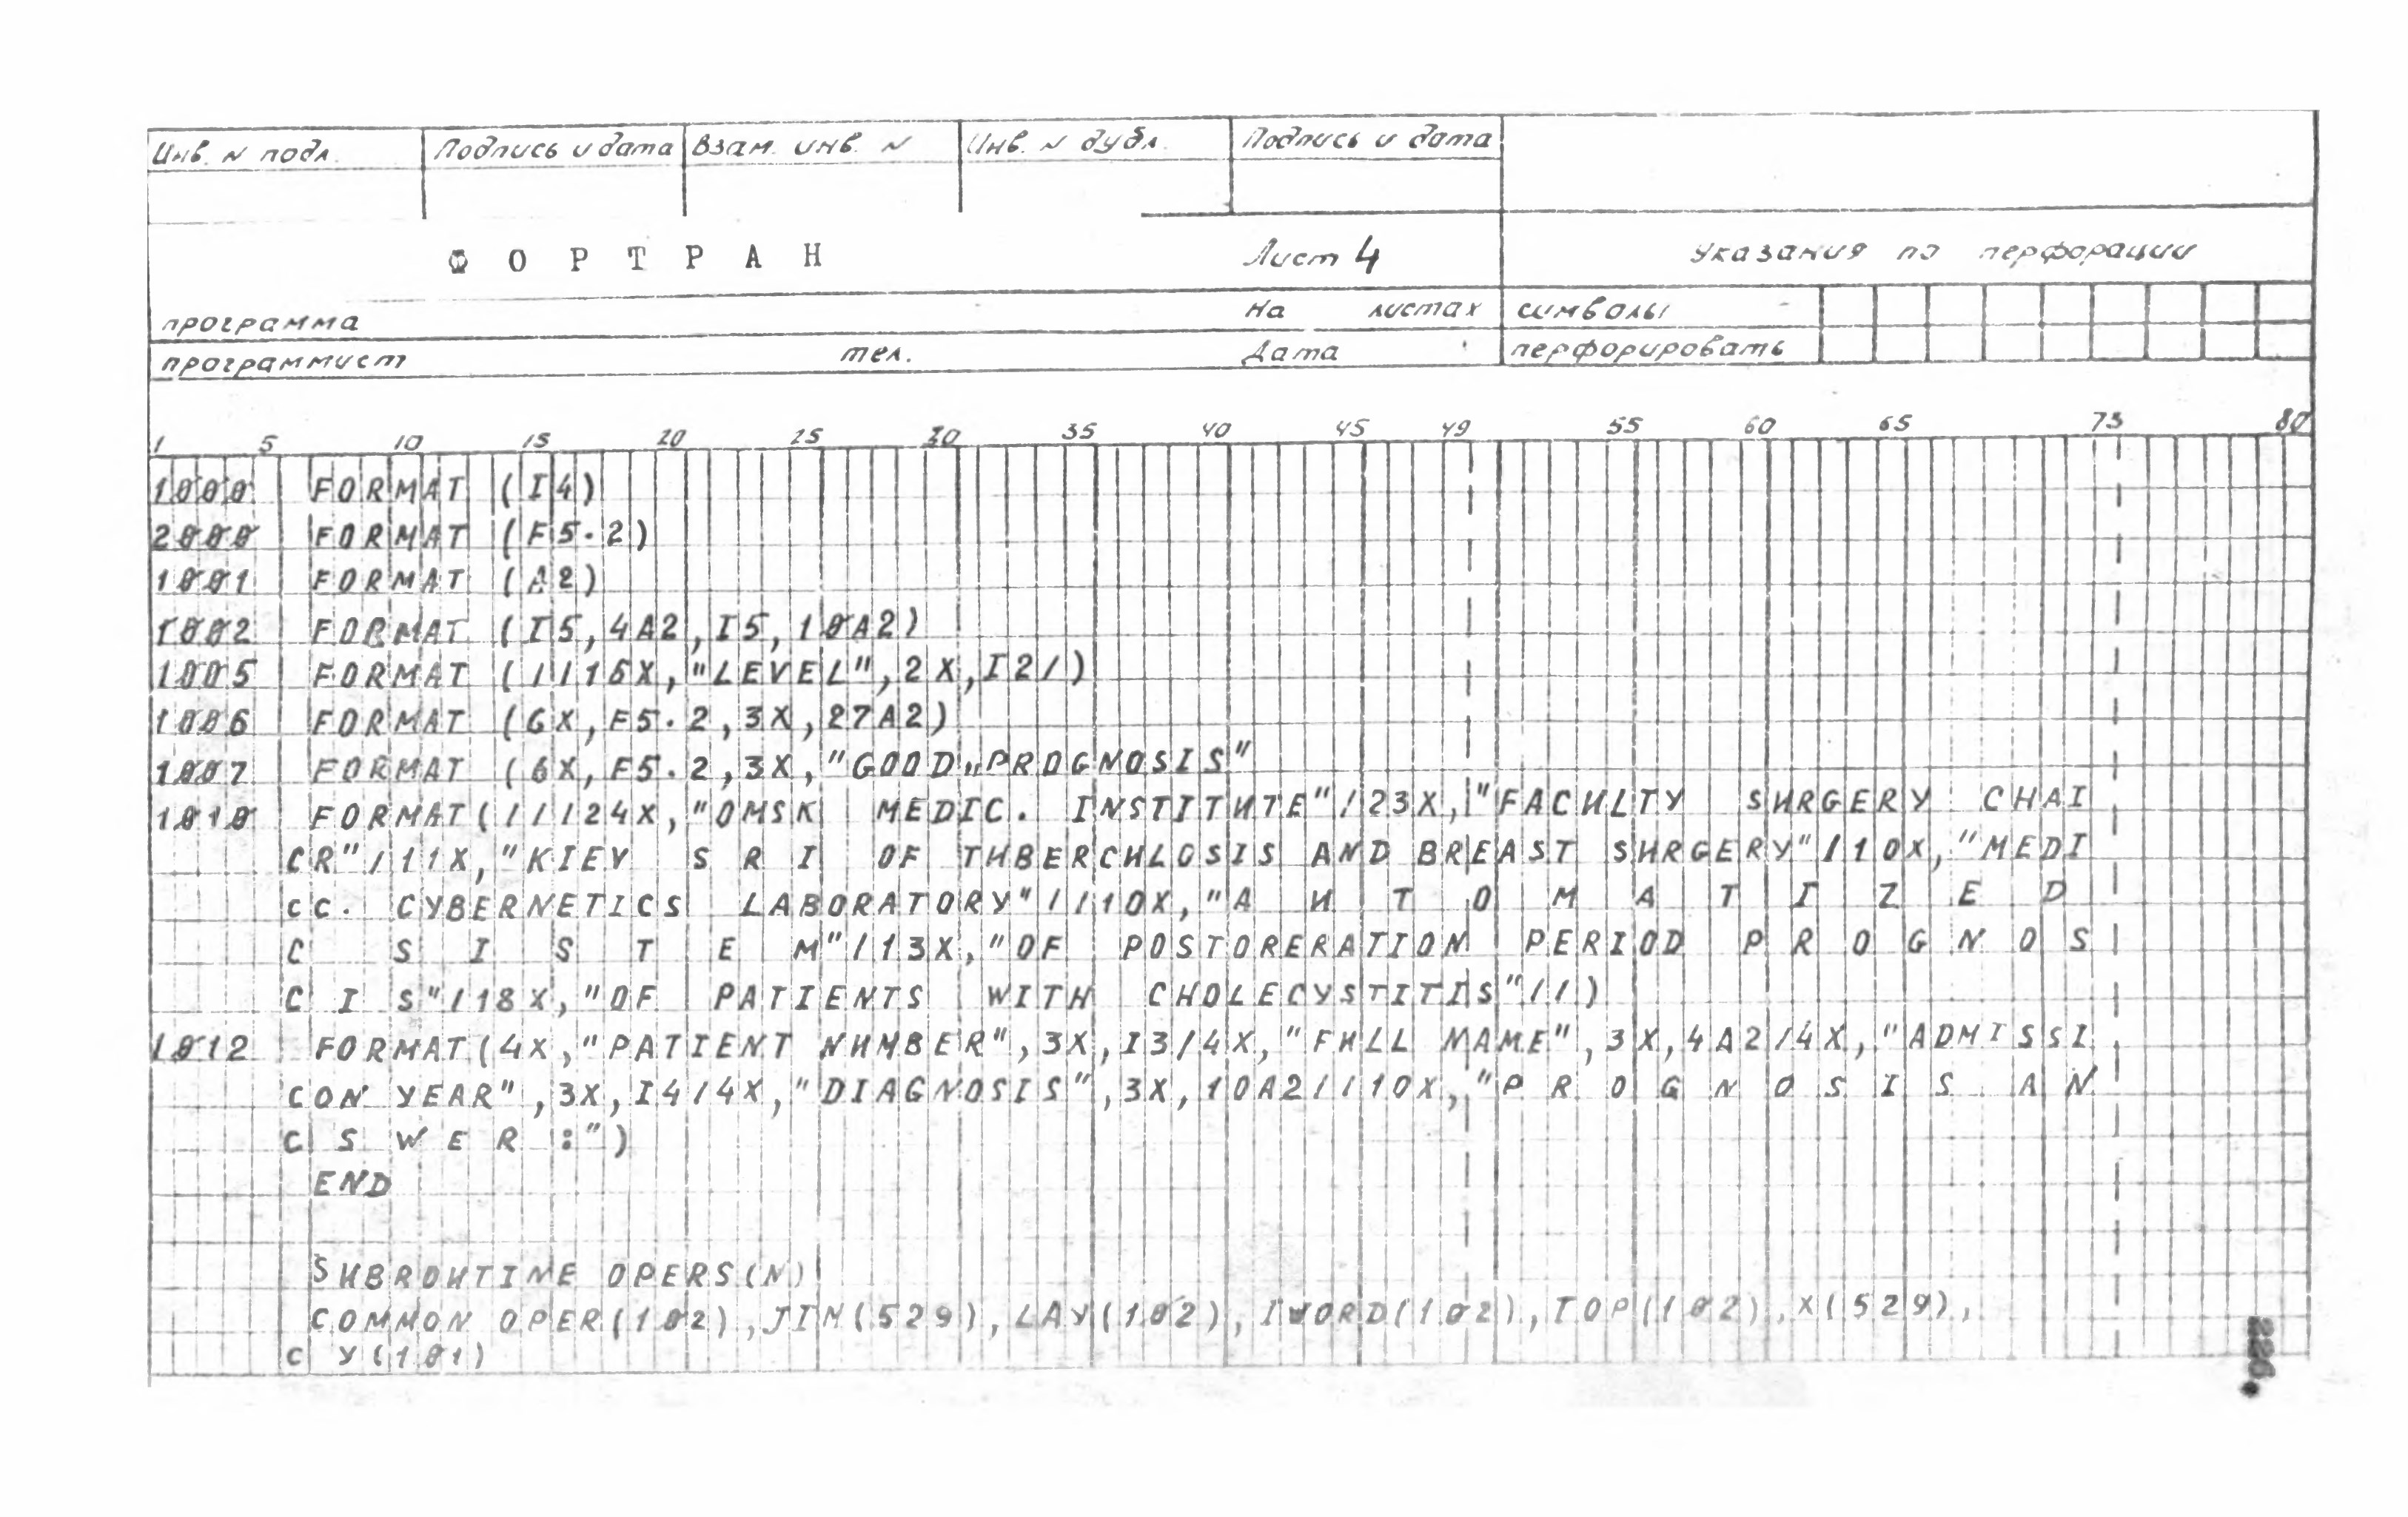 Инв. N подл. Подпись и дата Взам. инв. N Инв. N дубл. Подпись и дата
Ф О Р Т Р А Н Лист 4 Указания по перфорации
программа На листах символы
программист тел. Дата перфорировать
1 5 10 15 20 25 30 35 40 45 49 55 60 65 73 80
1000 FORMAT (I4)
2000 FORMAT (F5.2)
1001 FORMAT (A2)
1002 FORMAT (I5,4A2,I5,10A2)
1005 FORMAT (//16X,"LEVEL",2X,I2/)
1006 FORMAT (6X,F5.2,3X,27A2)
1007 FORMAT (6X,F5.2,3X,"GOOD„PROGNOSIS"
1010 FORMAT(///24X,"OMSK MEDIC. INSTITUTE"/23X,"FACULTY SURGERY CHAI
CR"/11X,"KIEV S R I OF TUBERCULOSIS AND BREAST SURGERY"/10X,"MEDI
CC. CYBERNETICS LABORATORY"//10X,"A U T O M A T I Z E D
C S I S T E M"/13X,"OF POSTORERATION PERIOD P R O G N O S
C I S"/18X,"OF PATIENTS WITH CHOLECYSTITIS"//)
1012 FORMAT(4X,"PATIENT NUMBER",3X,I3/4X,"FULL NAME",3X,4A2/4X,"ADMISSI
CON YEAR",3X,I4/4X,"DIAGNOSIS",3X,10A2//10X,"P R O G N O S I S A N
C S W E R :")
END
SUBROUTINE OPERS(N)
COMMON OPER(102),JIN(529),LAY(102),IWORD(102),TOP(102),X(529),
C Y(101)
226.